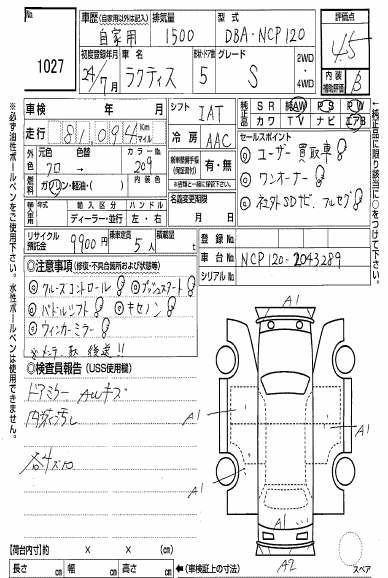 1027
車歴 (自家用以外は記入)
自家用
排気量
1500
型式
DBA-NCP120
評価点
4.5
内装補助評価 B
初度登録(年)月
24/7月
車名
ラクティス
形状・ドア数
5
グレード
S
2WD・4WD
車検 年 月
走行 81,094 Km マイル
シフト IAT
冷房 AAC
純正品 SR 純AW PS PW
カワ TV ナビ エアB
セールスポイント
①ユーザー買取車
②ワンオーナー
③社外SDナビ、フルセグ
外色 元色 色替 カラーNo.
クロ → 209
燃料 ガソリン・軽油・( ) 内装色
新車整備手帳(保証書付) 有・無
※書類と一緒に保管されたし
名義変更期限 月 日
輸入車 年式 輸入区分 ハンドル
年 ディーラー・並行 左・右
リサイクル預託金 9900円
乗車定員 5人
積載量 t
登録No.
車台No. NCP120-2043289
シリアルNo.
◎注意事項(修復・不具合箇所および状態等)
①クルーズコントロール ②プッシュスタート
③パドルシフト ④キセノン
⑤ウィンカーミラー
後送!!
◎検査員報告(USS使用欄)
ドアミラー AWキズ
内張汚し
各キズ凹
A1
A1
A1
A1
A1
A1
A2
スペア
【荷台内寸】約 × × (cm)
長さ cm 幅 cm 高さ cm ←(車検証上の寸法)
※必ず油性ボールペンをご使用下さい。水性ボールペンは使用できません。
↑純正品に限り該当に○をつけて下さい。